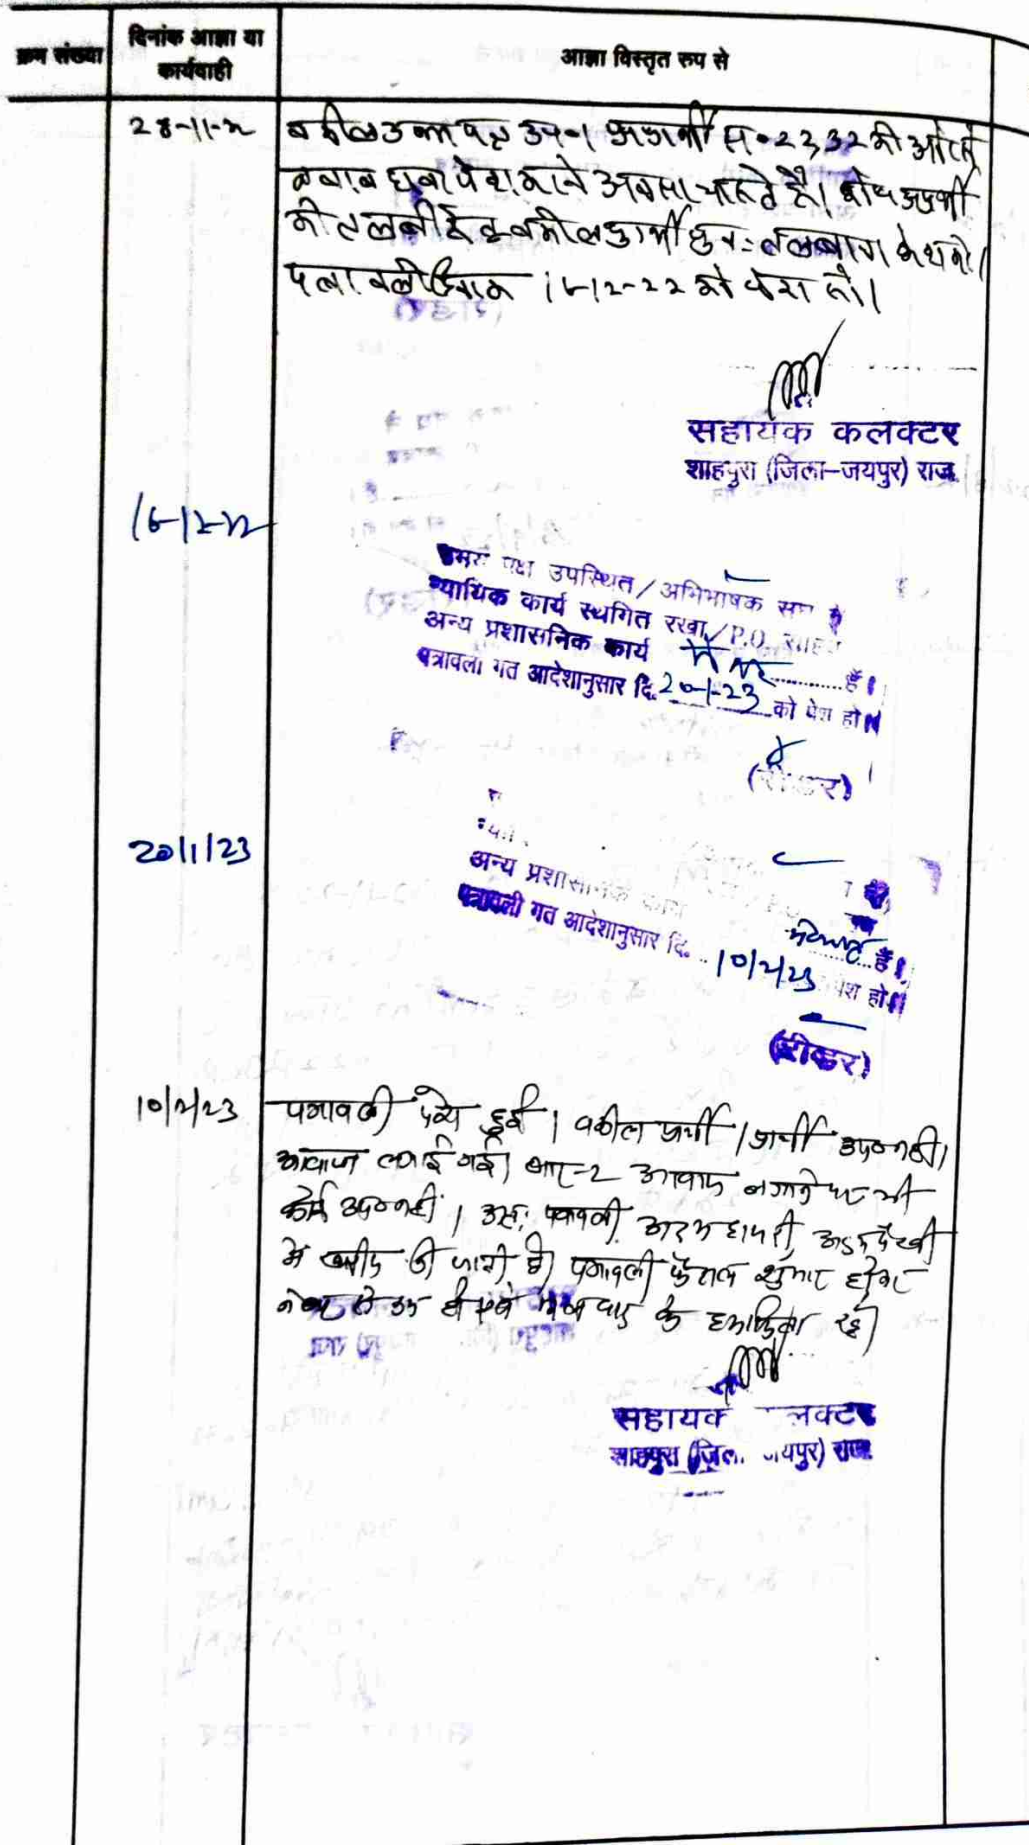 क्रम संख्या
दिनांक आज्ञा या
कार्यवाही
आज्ञा विस्तृत रुप से
28-11-22
वकील उभय पक्ष उप०। अप्रार्थी सं०-22,32 की ओर से
जवाब दावा पेश करने अवसर चाहते है। शेष अप्रार्थी
की तलबी हेतु वकील प्रार्थी पुनः तलबाना पेश करे।
पत्रावली दिनांक 16-12-22 को पेश हो।
सहायक कलक्टर
शाहपुरा (जिला-जयपुर) राज.
16-12-22
पक्ष उपस्थित / अभिभाषक
न्यायिक कार्य स्थगित रखा / P.O.
अन्य प्रशासनिक कार्य है।
पत्रावली गत आदेशानुसार दि. 20-1-23 को पेश हो।
(रीडर)
20/1/23
अन्य प्रशासनिक कार्य
है।
पत्रावली गत आदेशानुसार दि. 10/2/23 पेश हो।
(रीडर)
10/2/23
पत्रावली पेश हुई। वकील प्रार्थी / प्रार्थी उप० नहीं।
आवाज लगाई गई। बार-2 आवाज लगाने पर भी
कोई उप० नहीं। अतः पत्रावली अदम हाजरी अदम पैरवी
में खारीज की जाती है। पत्रावली फैसल शुमार होकर
नम्बर से कम हो रहे
सहायक कलक्टर
शाहपुरा (जिला जयपुर) राज.